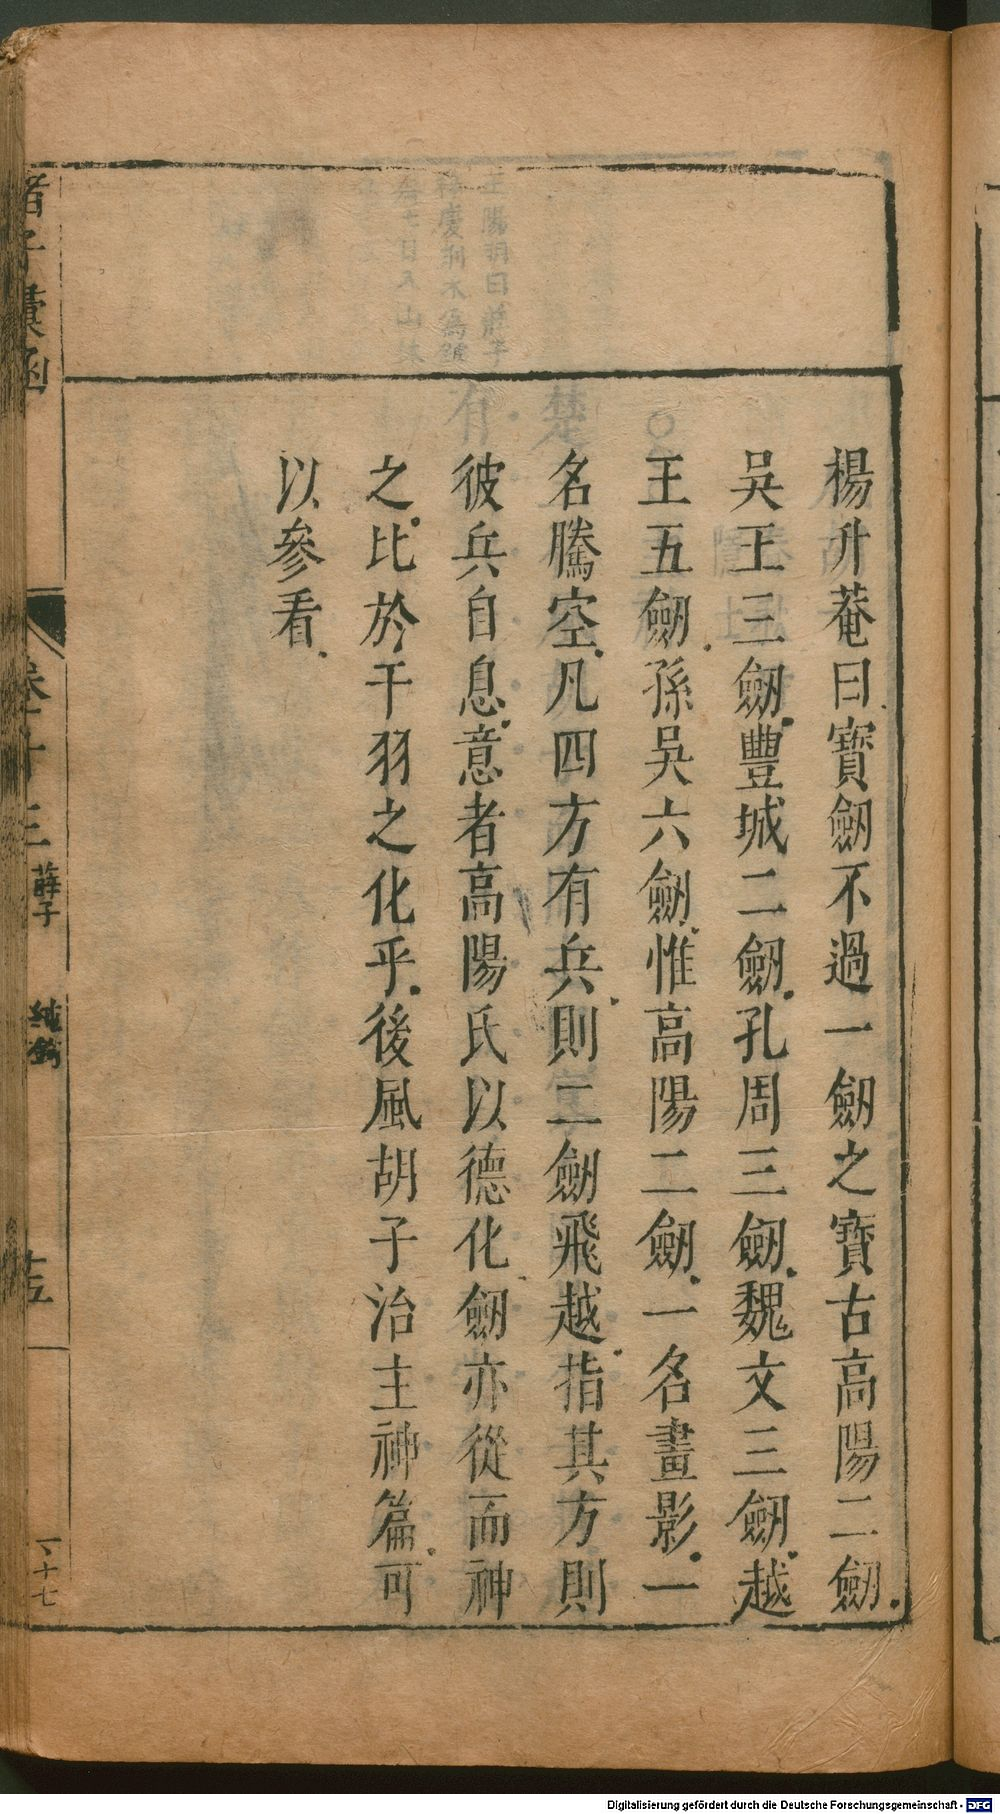 楊升菴曰寶劒不過一劒之寶古高陽二劒
吳王三劒豐城二劒孔周三劒魏文三劒越
王五劒孫吳六劒惟高陽二劒一名畫影一
名騰空凡四方有兵則二劒飛越指其方則
彼兵自息意者高陽氏以德化劒亦從而神
之比於干羽之化乎後風胡子治主神篇可
以參看
諸子彙函
卷十三
薛子
純鉤
十五
一十七
Digitalisierung gefördert durch die Deutsche Forschungsgemeinschaft - DFG